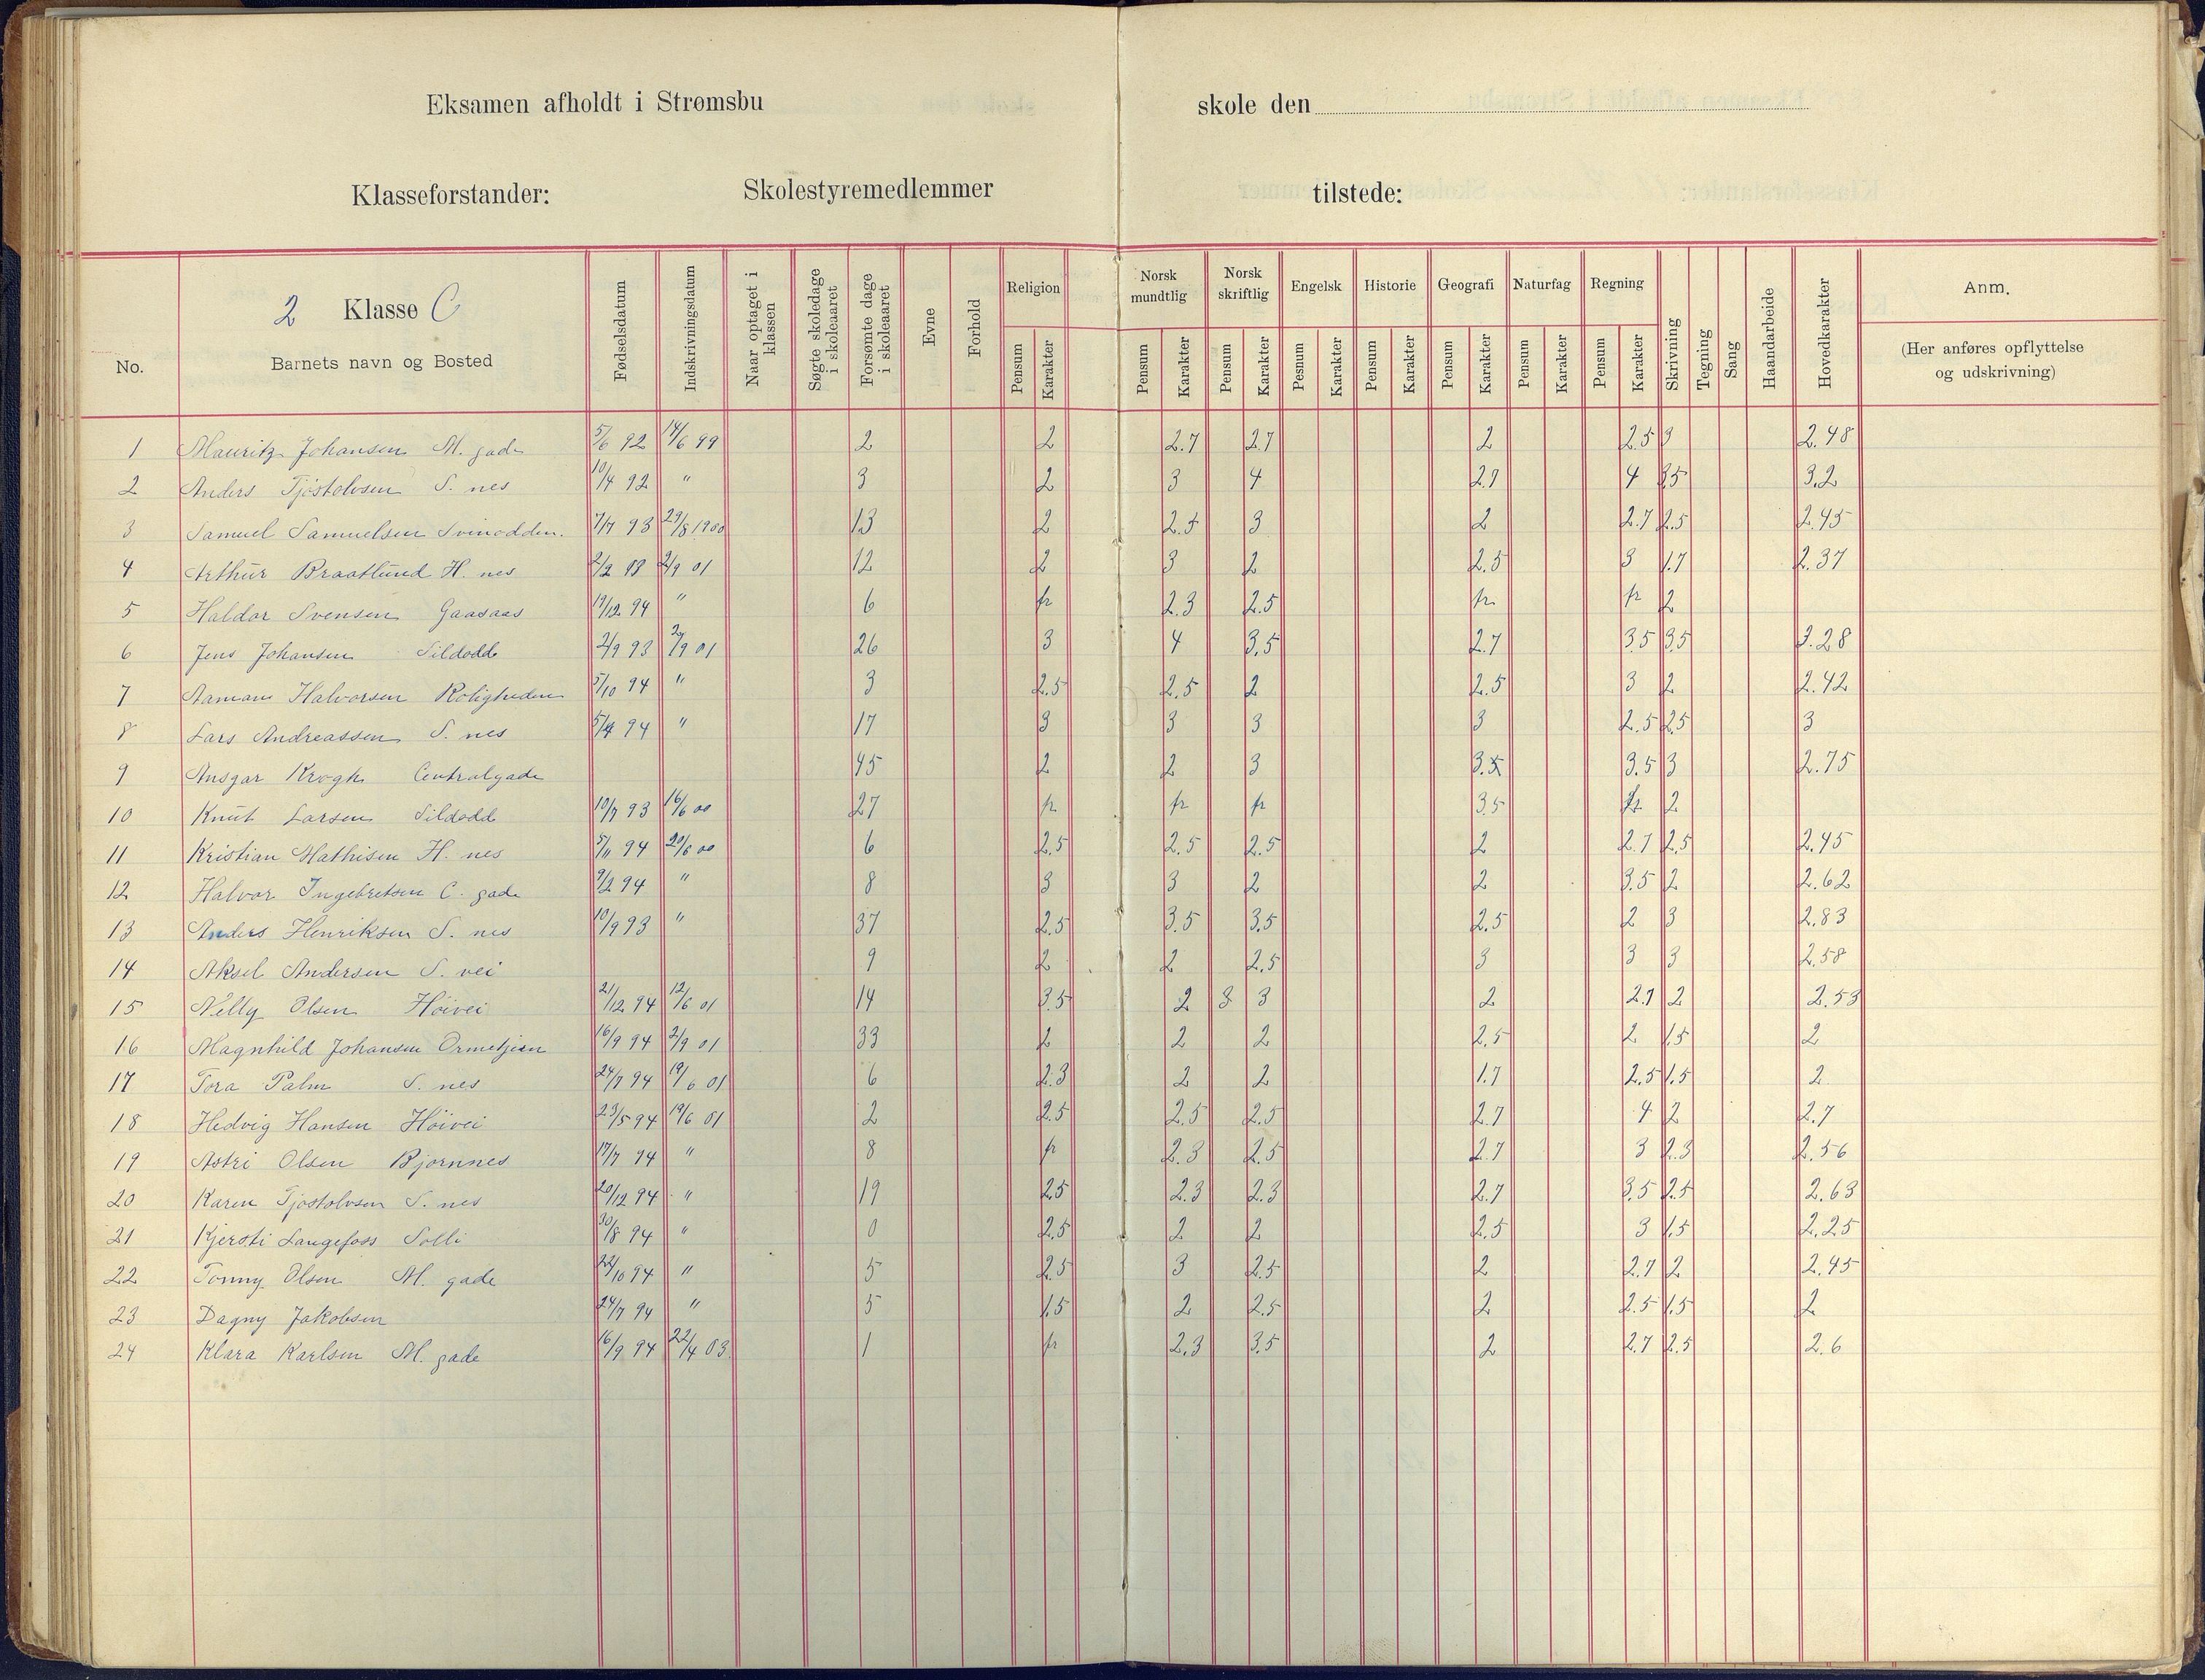 Eksamen afholdt i Strømsbu skole den
Klasseforstander: Skolestyremedlemmer tilstede:
No. 2 Klasse C Barnets navn og Bosted Fødselsdatum Indskrivningsdatum Naar optaget i klassen Søgte skoledage i skoleaaret Forsømte dage i skoleaaret Evne Forhold Religion Norsk mundtlig Norsk skriftlig Engelsk Historie Geografi Naturfag Regning Skrivning Tegning Sang Haandarbeide Hovedkarakter Anm.
Pensum Karakter Pensum Karakter Pensum Karakter Pesnum Karakter Pensum Karakter Pensum Karakter Pensum Karakter Pensum Karakter (Her anføres opflyttelse og udskrivning)
1 Mauritz Johansen M. gade 5/6 92 14/6 99 2 2 2.7 2.7 2 2.5 3 2.48
2 Anders Tjöstolvsen S. nes 10/4 92 " 3 2 3 4 2.7 4 3.5 3.2
3 Samuel Samuelsen Svinodden. 7/7 93 29/8 1900 13 2 2.5 3 2 2.7 2.5 2.45
4 Arthur Braatlund H. nes 2/9 01 12 2 3 2 2.5 3 1.7 2.37
5 Haldor Svensen Gaasaas 19/12 94 " 6 fr 2.3 2.5 fr fr 2
6 Jens Johansen Sildodd 2/9 93 2/9 01 26 3 4 3.5 2.7 3.5 3.5 3.28
7 Halvorsen Roligheden 5/10 94 " 3 2.5 2.5 2 2.5 3 2 2.42
8 Lars Andreassen S. nes 5/4 94 " 17 3 3 3 3 2.5 2.5 3
9 Ansgar Krogh Centralgade 45 2 2 3 3.5 3.5 3 2.75
10 Knut Larsen Sildodd 10/7 93 16/6 00 27 fr fr fr 3.5 fr 2
11 Kristian Mathisen H. nes 5/11 94 20/6 00 6 2.5 2.5 2.5 2 2.7 2.5 2.45
12 Halvor Ingebretsen C. gade 9/2 94 " 8 3 3 2 2 3.5 2 2.62
13 Anders Henriksen S. nes 10/9 93 " 37 2.5 3.5 3.5 2.5 2 3 2.83
14 Aksel Andersen S. vei 9 2 2 2.5 3 3 3 2.58
15 Nelly Olsen Höivei 21/12 94 12/6 01 14 3.5 2 3 3 2 2.7 2 2.53
16 Magnhild Johansen Ormetjen 16/9 94 2/9 01 33 2 2 2 2.5 2 1.5 2
17 Tora Palm S. nes 24/7 94 19/6 01 6 2.3 2 2 1.7 2.5 1.5 2
18 Hedvig Hansen Höivei 23/5 94 19/6 01 2 2.5 2.5 2.5 2.7 4 2 2.7
19 Astri Olsen Bjornnes 17/7 94 " 8 fr 2.3 2.5 2.7 3 2.3 2.56
20 Karen Tjostolvsen S. nes 20/12 94 " 19 2.5 2.3 2.3 2.7 3.5 2.5 2.63
21 Kjersti Langefoss Solli 30/8 94 " 0 2.5 2 2 2.5 3 1.5 2.25
22 Tonny Olsen M. gade 22/10 94 " 5 2.5 3 2.5 2 2.7 2 2.45
23 Dagny Jakobsen 24/7 94 " 5 1.5 2 2.5 2 2.5 1.5 2
24 Klara Karlsen M. gade 16/9 94 22/4 03. 1 fr 2.3 3.5 2 2.7 2.5 2.6